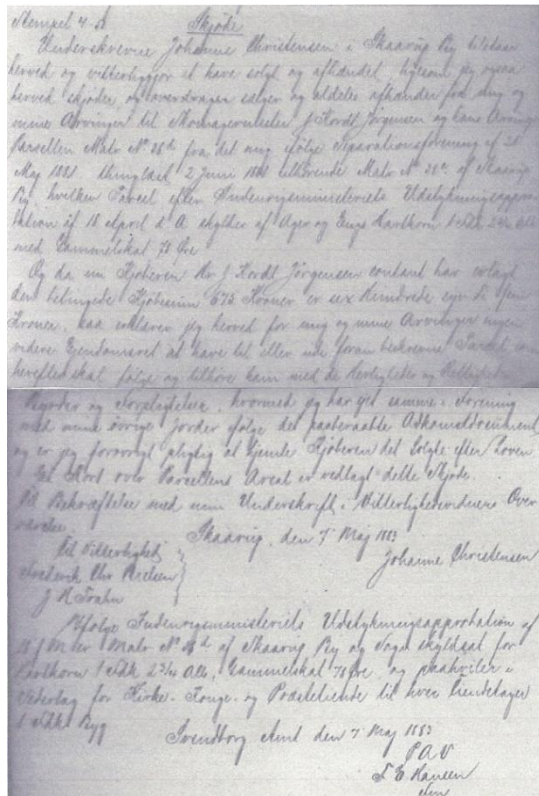 Stempel 4-
Skjøde
Underskrevne Johanne Christensen i Skaarup By tilstaar
herved og vitterliggjør at have solgt og afhændet, ligesom jeg ogsaa
herved skjøder og overdrager sælger og aldeles afhænder fra mig og
mine Arvinger til Skomagermester J. Kordt Jörgensen og hans Arvinger
Parcellen Matr N° 28d fra det mig ifølge Separationsforening af 21
Maj 1881 thinglæst 2 Juni 1881 tilhørende Matr N° 28a af Skaarup
By, hvilken Parcel efter Indenrigsministeriets Udstykningsappro-
bation af 18 April d. A skylder af Ager og Engs Hartkorn 1 Fdk 2 Alb
med Gammelskat 78 Øre
Og da nu Kjøberen Hr J. Kordt Jörgensen contant har erlagt
den betingede Kjøbesum 675 Kroner er sex Hundrede syv ti fem
Kroner, saa erklærer jeg herved for mig og mine Arvinger ingen
videre Ejendomsret at have til eller over foran beskrevne Parcel som
herefter skal følge og tilhøre ham med de Herligheder og Rettigheder
Byrder og Forpligtelser, hvormed jeg har ejet samme i Forening
med mine øvrige Jorder ifølge det paaberaabte Adkomstdocument
og er jeg forøvrigt pligtig at hjemle Kjøberen det Solgte efter Loven
Et Kort over Parcellens Areal er vedlagt dette Skjøde.
Til Bekræftelse med min Underskrift i Vitterlighedsvidners Over-
værelse.
Skaarup, den 7' Maj 1883
Til Vitterlighed
Johanne Christensen
Frederik Chr Nielsen
J H
Ifølge Indenrigsministeriets Udstykningsapprobation af
18 f M er Matr N° 28d af Skaarup By og Sogn skyldsat for
Hartkorn 1 Fdk 2 Alb, Gammelskat 78 Øre, og paahviler i
Vederlag for Kirke- Konge- og Præstetiende til hver Tiendetager
1 Fdk Byg
Svendborg Amt den 7' Maj 1883
P A V
Hansen